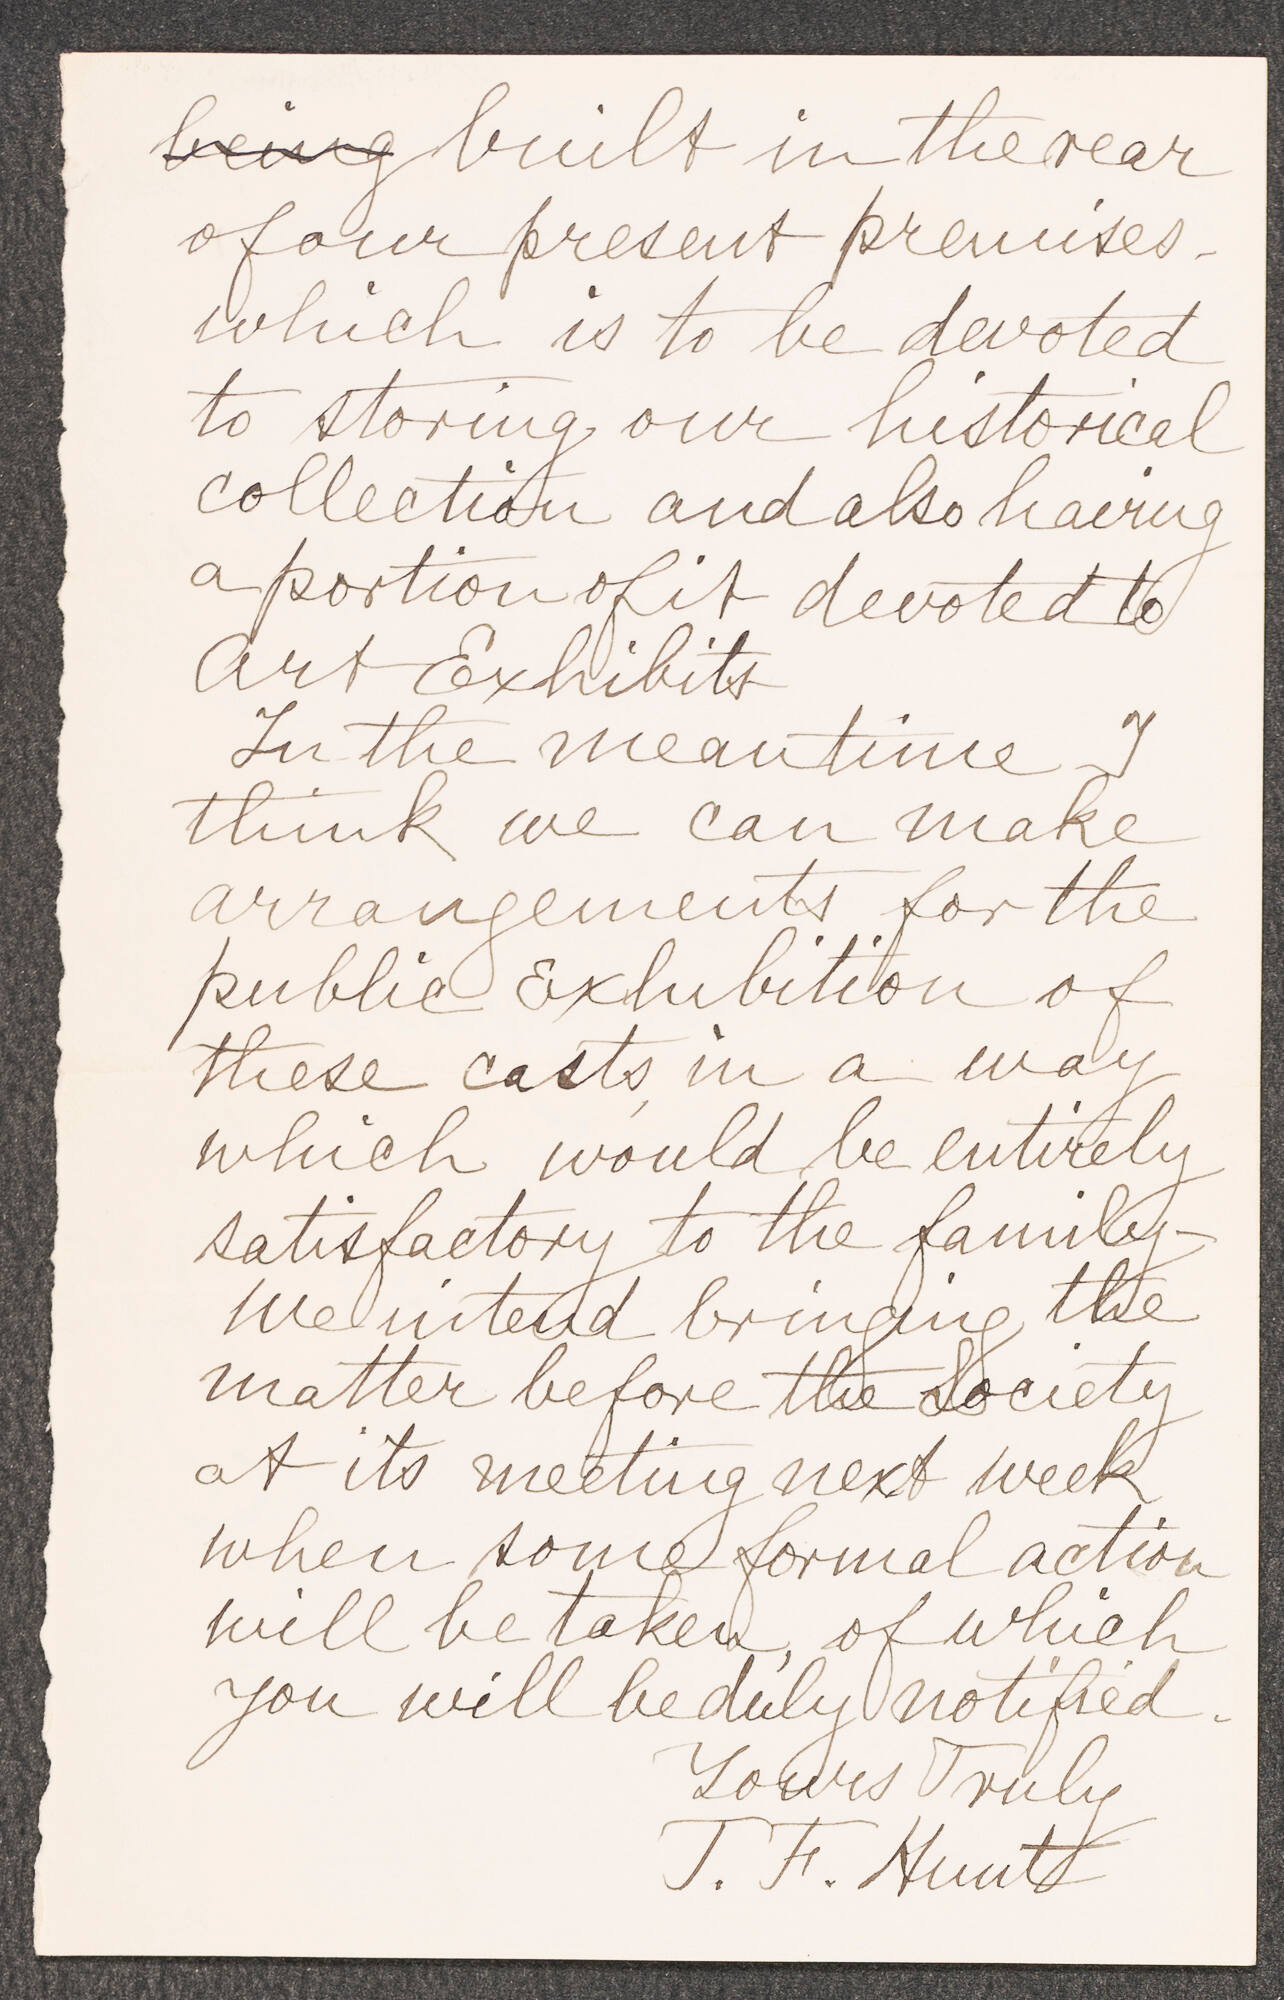 being built in the rear
of our present premises -
which is to be devoted
to storing our historical
collection and also having
a portion of it devoted to
Art Exhibits
In the meantime I
think we can make
arrangements for the
public Exhibition of
these casts, in a way
which would be entirely
satisfactory to the family -
We intend bringing the
matter before the Society
at its meeting next week
when some formal action
will be taken, of which
you will be duly notified.
Yours Truly
T. F. Hunt